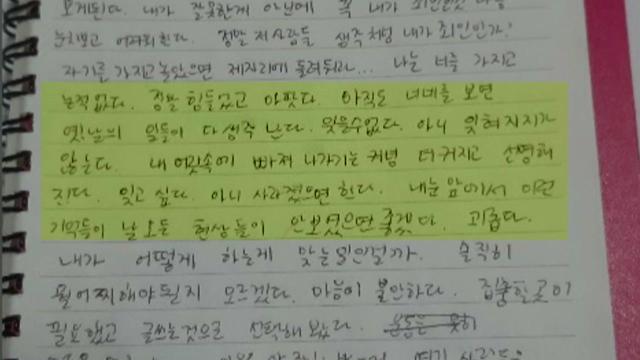 모르겠다. 내가 잘못한게 아닌데 꼭 내가 죄인인것 마냥
눈치보고 어려워한다. 정말 저사람들 생각처럼 내가 죄인인가?
자기를 가지고 놀았으면 제자리에 돌려놔라... 나는 너를 가지고
논적없다. 정말 힘들었고 아팟다. 아직도 너네를 보면
옛날의 일들이 다 생각 난다. 잊을수없다. 아니 잊혀지지가
않는다. 내 머릿속에 빠져 나가기는 커녕 더 커지고 선명해
진다. 잊고 싶다. 아니 사라졌으면 한다. 내눈 앞에서 이런
기억들이 날 모든 현상들이 안보였으면 좋겠다. 괴롭다.
내가 어떻게 하는게 맞는일인걸까. 솔직히
뭘어찌해야 될지 모르겠다. 마음이 불안하다. 집중할곳이
필요했고 글쓰는것으로 선택해봤다.